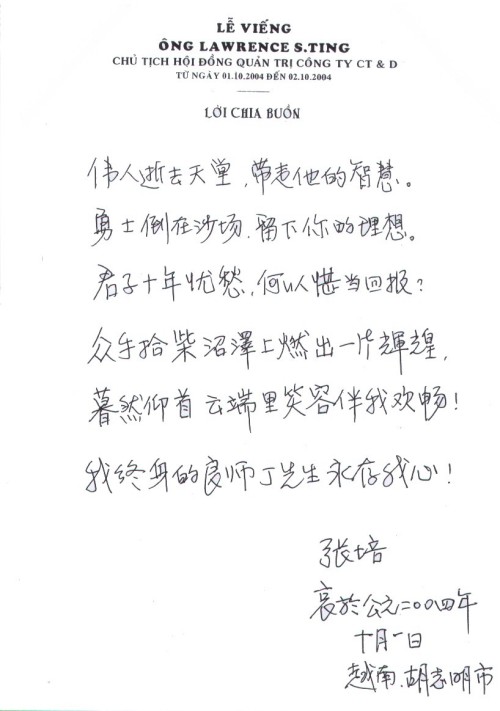 LỄ VIẾNG
ÔNG LAWRENCE S.TING
CHỦ TỊCH HỘI ĐỒNG QUẢN TRỊ CÔNG TY CT & D
TỪ NGÀY 01.10.2004 ĐẾN 02.10.2004
LỜI CHIA BUỒN
伟人逝去天堂，带走他的智慧。
勇士倒在沙场，留下你的理想。
君子十年忧愁，何以堪当回报？
众手拾柴沼澤上燃出一片輝煌，
暮然仰首云端里笑容伴我欢畅！
我终身的良师丁先生永存我心！
张培
哀於公元二00四年
十月一日
越南．胡志明市